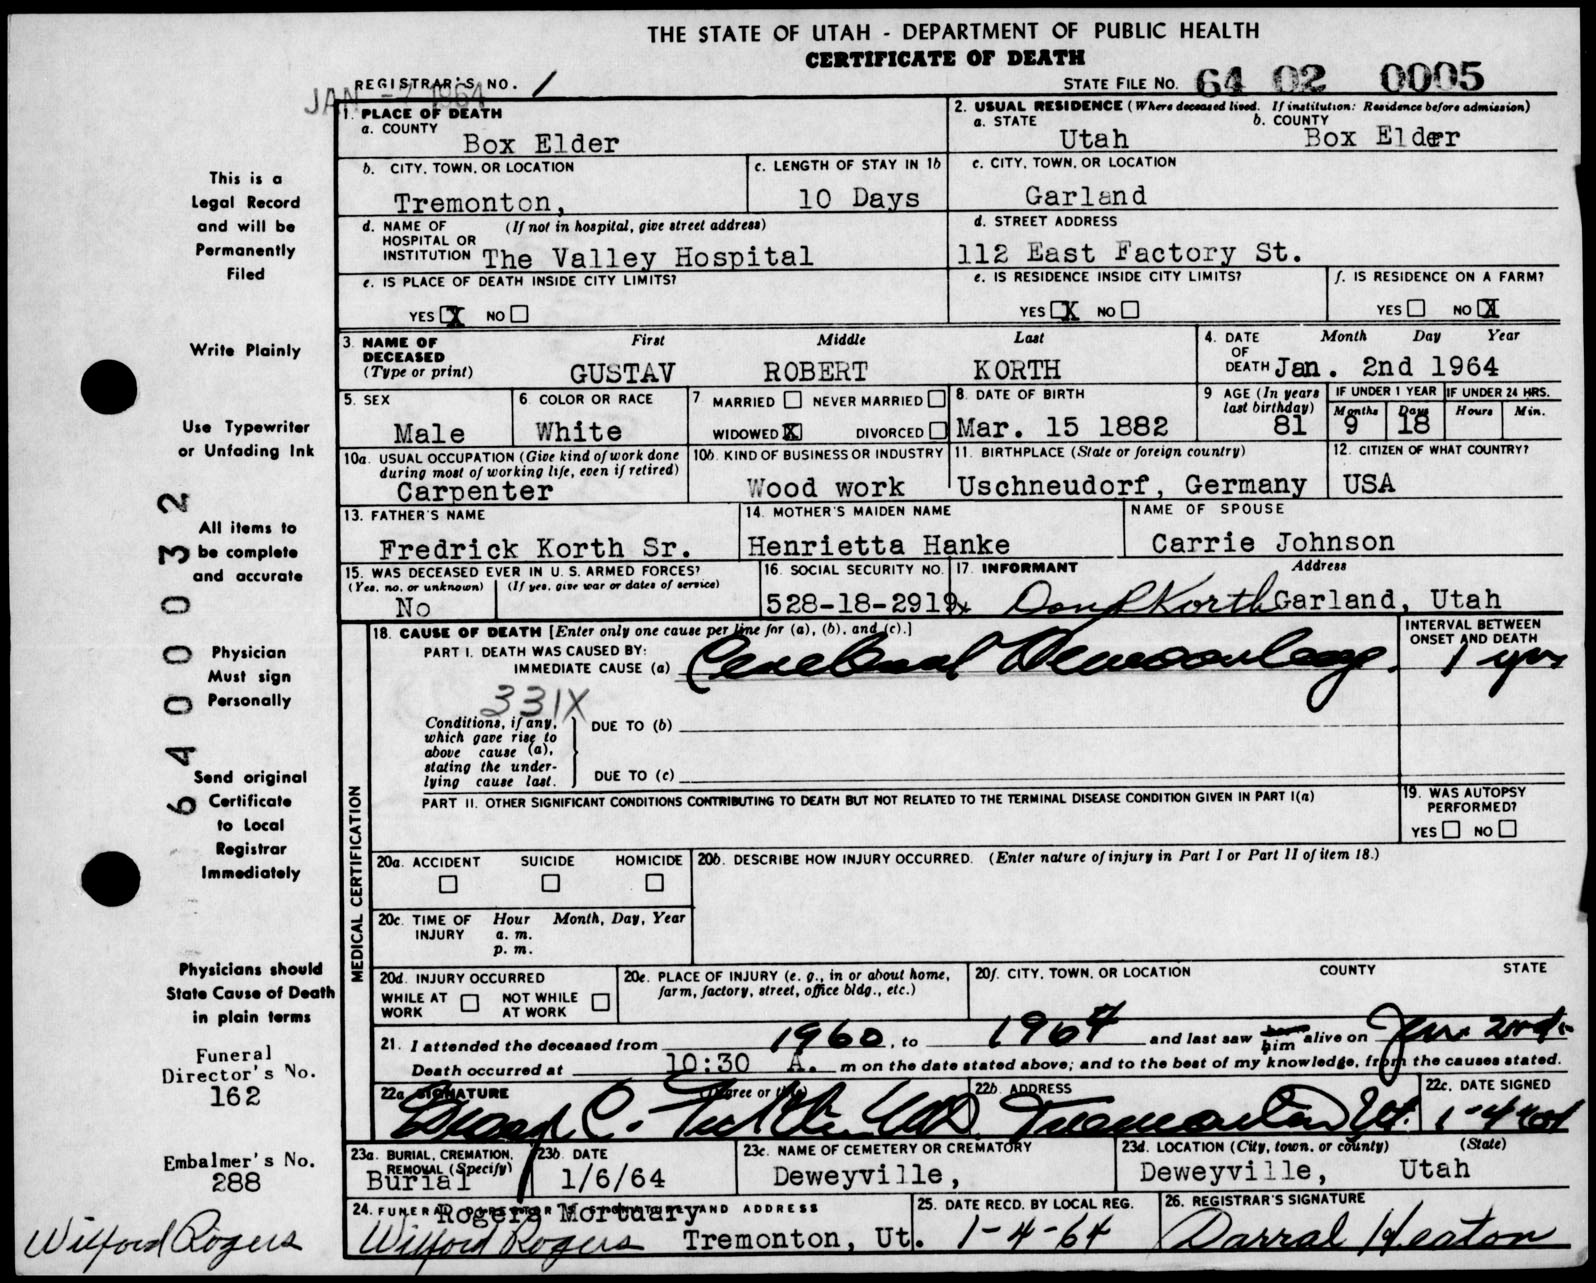 THE STATE OF UTAH - DEPARTMENT OF PUBLIC HEALTH
CERTIFICATE OF DEATH
REGISTRAR'S NO. 1
STATE FILE NO. 64 02 0005
JAN -7 1964
1. PLACE OF DEATH
a. COUNTY
Box Elder
2. USUAL RESIDENCE (Where deceased lived. If institution: Residence before admission)
a. STATE
Utah
b. COUNTY
Box Elder
b. CITY, TOWN, OR LOCATION
Tremonton,
c. LENGTH OF STAY IN 1b
10 Days
c. CITY, TOWN, OR LOCATION
Garland
d. NAME OF HOSPITAL OR INSTITUTION
(If not in hospital, give street address)
The Valley Hospital
d. STREET ADDRESS
112 East Factory St.
e. IS PLACE OF DEATH INSIDE CITY LIMITS?
YES X NO
e. IS RESIDENCE INSIDE CITY LIMITS?
YES X NO
f. IS RESIDENCE ON A FARM?
YES NO X
3. NAME OF DECEASED (Type or print)
First Middle Last
GUSTAV ROBERT KORTH
4. DATE OF DEATH
Month Day Year
Jan. 2nd 1964
5. SEX
Male
6. COLOR OR RACE
White
7. MARRIED NEVER MARRIED
WIDOWED X DIVORCED
8. DATE OF BIRTH
Mar. 15 1882
9 AGE (In years last birthday)
81
IF UNDER 1 YEAR
Months Days
9 18
IF UNDER 24 HRS.
Hours Min.
10a. USUAL OCCUPATION (Give kind of work done during most of working life, even if retired)
Carpenter
10b. KIND OF BUSINESS OR INDUSTRY
Wood work
11. BIRTHPLACE (State or foreign country)
Uschneudorf, Germany
12. CITIZEN OF WHAT COUNTRY?
USA
13. FATHER'S NAME
Fredrick Korth Sr.
14. MOTHER'S MAIDEN NAME
Henrietta Hanke
NAME OF SPOUSE
Carrie Johnson
15. WAS DECEASED EVER IN U. S. ARMED FORCES?
(Yes, no, or unknown) (If yes, give war or dates of service)
No
16. SOCIAL SECURITY NO.
528-18-2919
17. INFORMANT Address
Korth Garland, Utah
MEDICAL CERTIFICATION
18. CAUSE OF DEATH [Enter only one cause per line for (a), (b), and (c).]
PART I. DEATH WAS CAUSED BY:
IMMEDIATE CAUSE (a) Cerebral Hemorrhage
INTERVAL BETWEEN ONSET AND DEATH
1 yr
331X
Conditions, if any, which gave rise to above cause (a), stating the underlying cause last.
DUE TO (b)
DUE TO (c)
PART II. OTHER SIGNIFICANT CONDITIONS CONTRIBUTING TO DEATH BUT NOT RELATED TO THE TERMINAL DISEASE CONDITION GIVEN IN PART I(a)
19. WAS AUTOPSY PERFORMED?
YES NO
20a. ACCIDENT SUICIDE HOMICIDE
20b. DESCRIBE HOW INJURY OCCURRED. (Enter nature of injury in Part I or Part II of item 18.)
20c. TIME OF INJURY
Hour Month, Day, Year
a. m.
p. m.
20d. INJURY OCCURRED
WHILE AT WORK NOT WHILE AT WORK
20e. PLACE OF INJURY (e. g., in or about home, farm, factory, street, office bldg., etc.)
20f. CITY, TOWN, OR LOCATION COUNTY STATE
21. I attended the deceased from 1960, to 1964 and last saw him alive on Jan 2nd
Death occurred at 10:30 A. m on the date stated above; and to the best of my knowledge, from the causes stated.
22a. SIGNATURE (Degree or title)
22b. ADDRESS
Tremonton Ut.
22c. DATE SIGNED
1-4-64
23a. BURIAL, CREMATION, REMOVAL (Specify)
Burial
23b. DATE
1/6/64
23c. NAME OF CEMETERY OR CREMATORY
Deweyville,
23d. LOCATION (City, town, or county) (State)
Deweyville, Utah
24. FUNERAL DIRECTOR'S SIGNATURE AND ADDRESS
Rogers Mortuary
Wilford Rogers Tremonton, Ut.
25. DATE RECD. BY LOCAL REG.
1-4-64
26. REGISTRAR'S SIGNATURE
Darral Heaton
This is a
Legal Record
and will be
Permanently
Filed
Write Plainly
Use Typewriter
or Unfading Ink
All items to
be complete
and accurate
Physician
Must sign
Personally
Send original
Certificate
to Local
Registrar
Immediately
Physicians should
State Cause of Death
in plain terms
Funeral
Director's No.
162
Embalmer's No.
288
Wilford Rogers
64000032